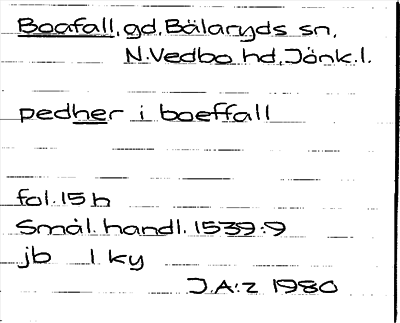 Boafall, gd, Bälaryds sn,
N. Vedbo hd, Jönk. l.
pedher i boeffall
fol. 15 h
Smål. handl. 1539:9
jb 1 ky
J.A:z 1980